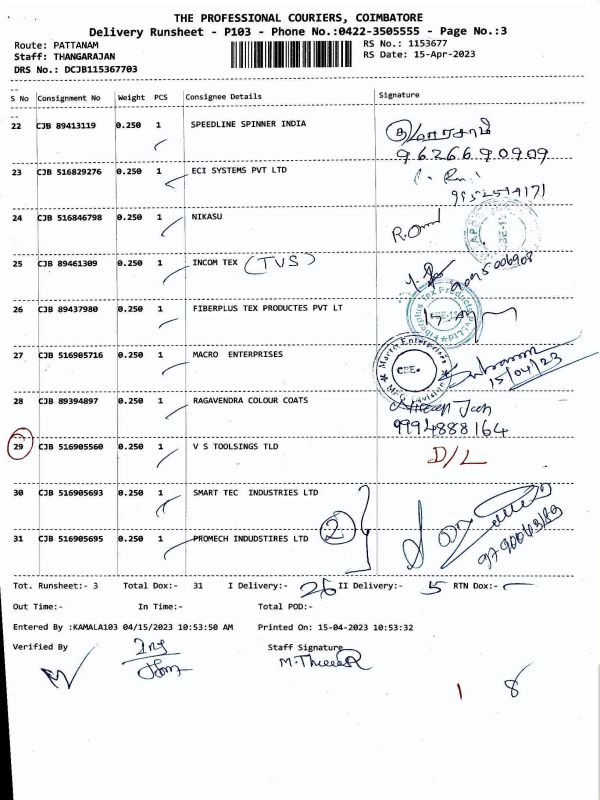 THE PROFESSIONAL COURIERS, COIMBATORE
Delivery Runsheet - P103 - Phone No.:0422-3505555 - Page No.:3
Route: PATTANAM RS No.: 1153677
Staff: THANGARAJAN RS Date: 15-Apr-2023
DRS No.: DCJB115367703
S No Consignment No Weight PCS Consignee Details Signature
22 CJB 89413119 0.250 1 SPEEDLINE SPINNER INDIA
9626690909
23 CJB 516829276 0.250 1 ECI SYSTEMS PVT LTD
9952514171
24 CJB 516846798 0.250 1 NIKASU
25 CJB 89461309 0.250 1 INCOM TEX (TVS)
26 CJB 89437980 0.250 1 FIBERPLUS TEX PRODUCTES PVT LT
Fiberplus Tex Products Pvt.Ltd
27 CJB 516905716 0.250 1 MACRO ENTERPRISES
Macro Enterprises
CBE
MFG Division
15/04/23
28 CJB 89394897 0.250 1 RAGAVENDRA COLOUR COATS
9994888164
29 CJB 516905560 0.250 1 V S TOOLSINGS TLD D/L
30 CJB 516905693 0.250 1 SMART TEC INDUSTRIES LTD
2
31 CJB 516905695 0.250 1 PROMECH INDUDSTIRES LTD
Tot. Runsheet:- 3 Total Dox:- 31 I Delivery:- 26 II Delivery:- 5 RTN Dox:-
Out Time:- In Time:- Total POD:-
Entered By :KAMALA103 04/15/2023 10:53:50 AM Printed On: 15-04-2023 10:53:32
Verified By Staff Signature
1 8